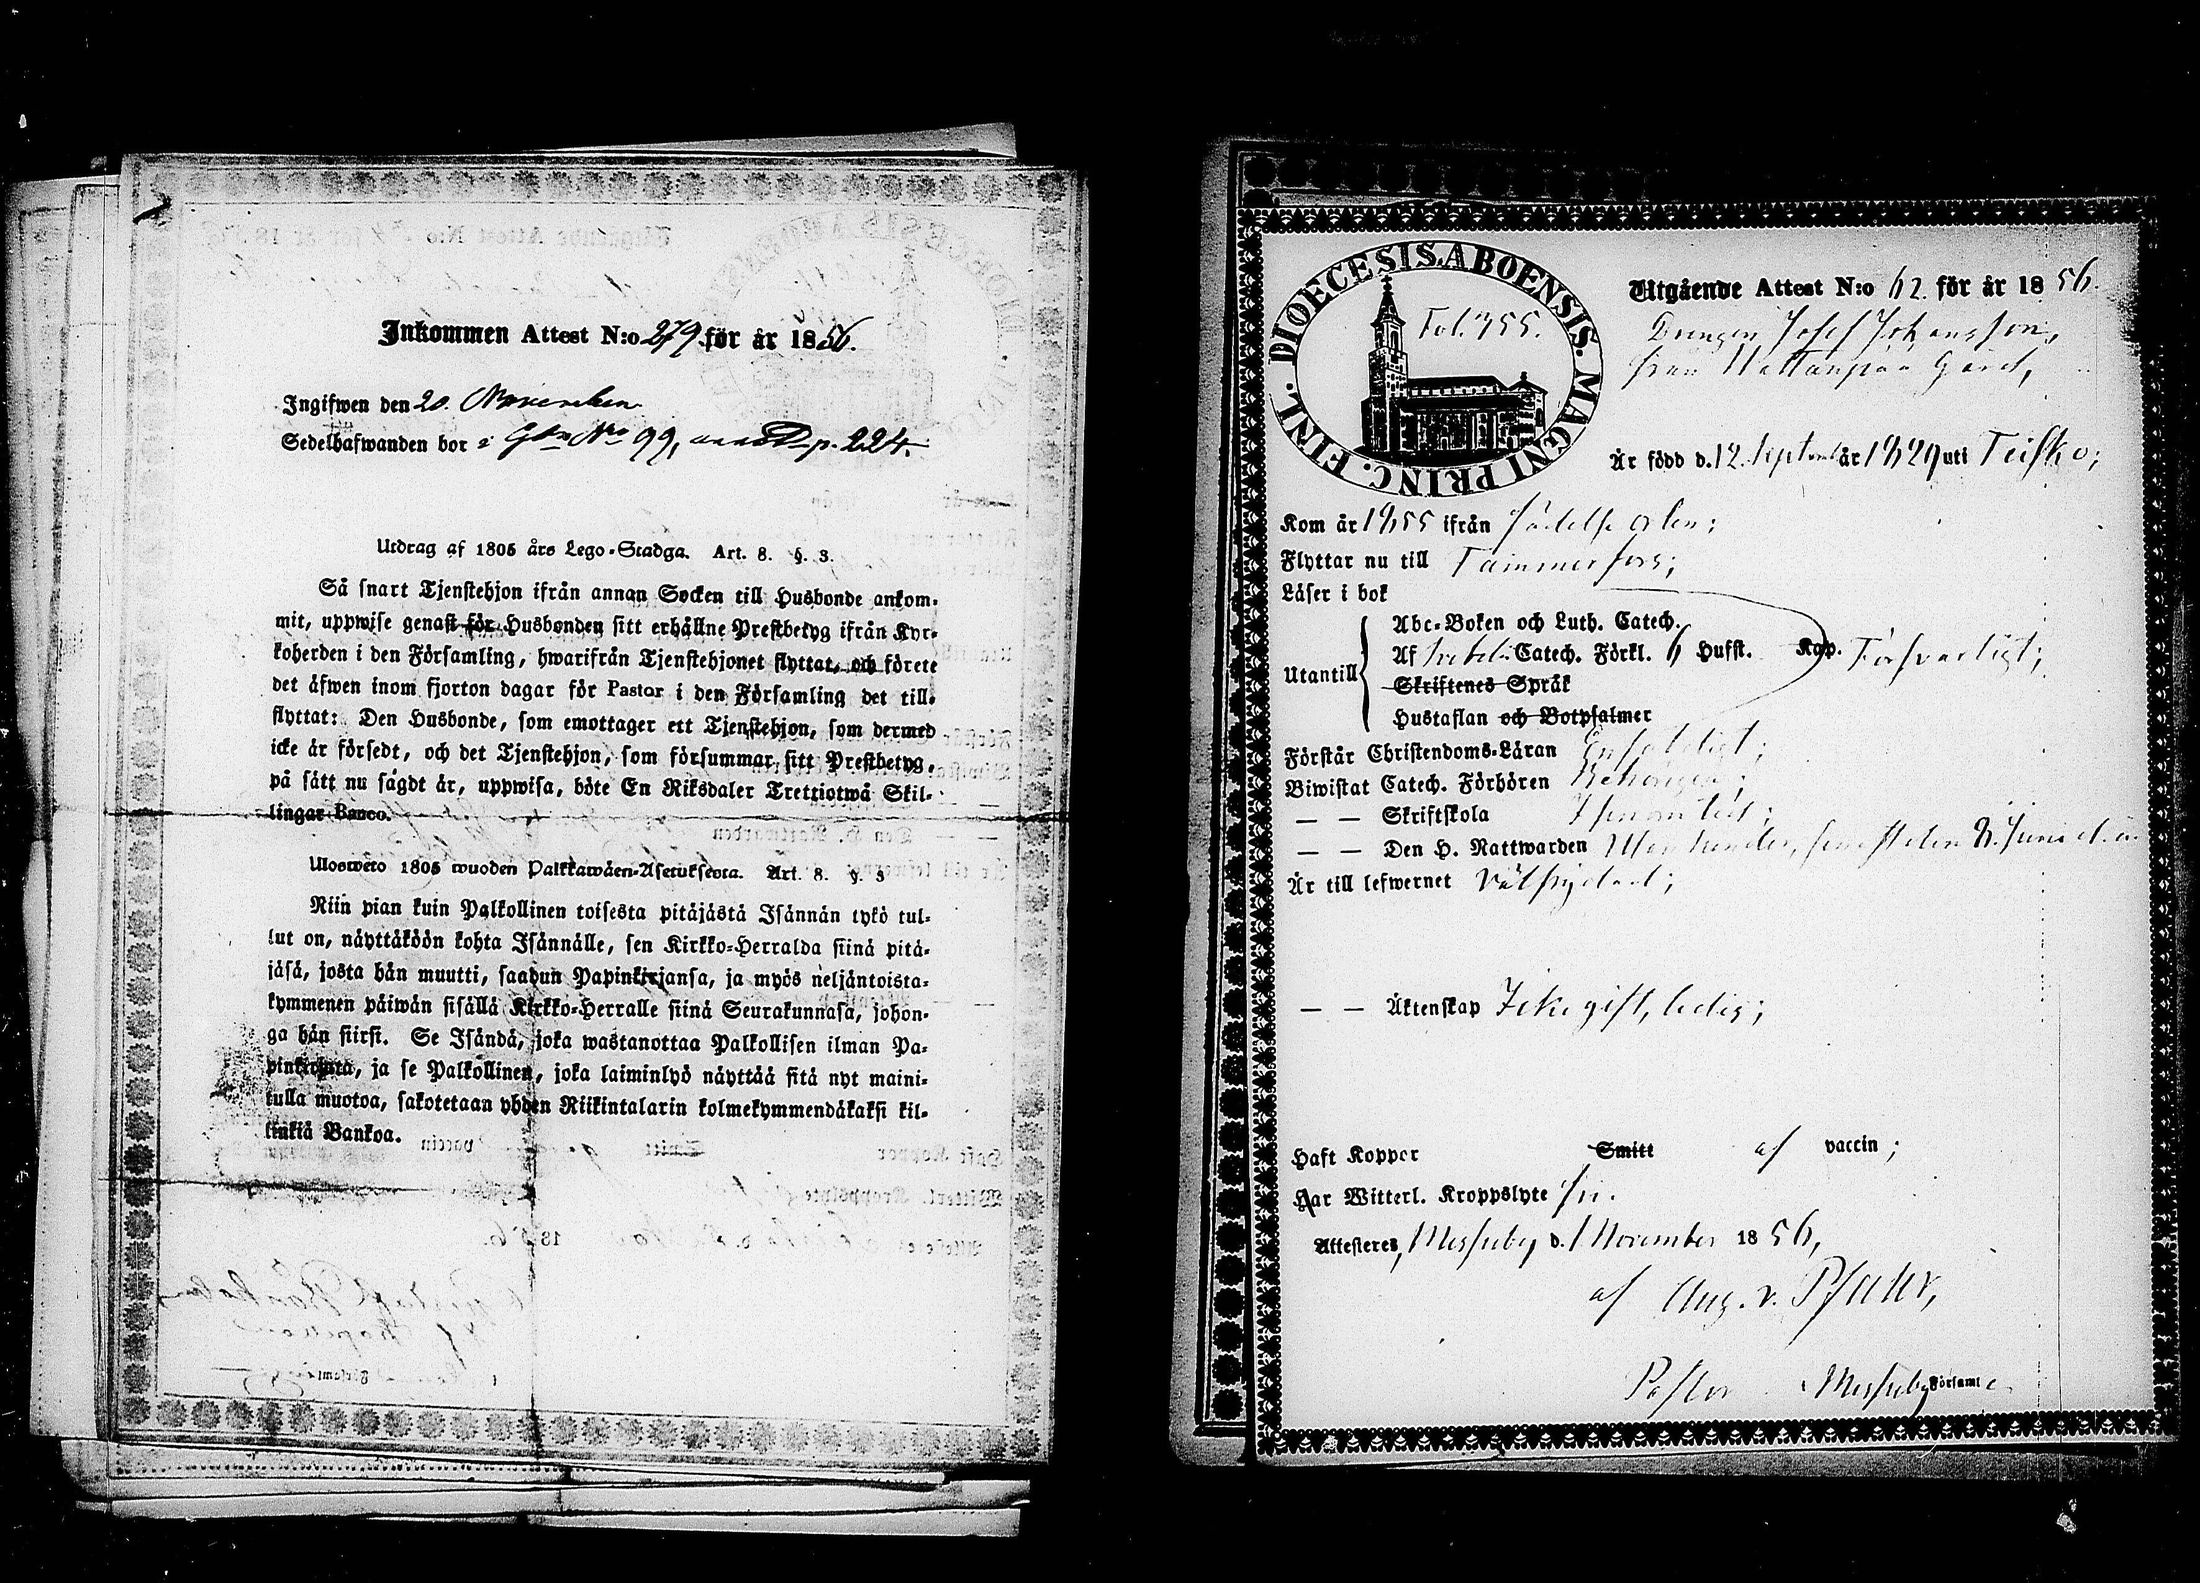 Inkommen Attest N:o 279 för år 1856.
Ingifwen den 20. November
Sedelhafwanden bor i Gdn No 99, p. 224.
Utdrag af 1805 års Lego-Stadga. Art. 8. §. 3.
Så snart Tjenstehjon ifrån annan Socken till Husbonde ankom-
mit, uppwise genast för Husbonden sitt erhållne Prestbetyg ifrån Kyr-
koherden i den Församling, hwarifrån Tjenstehjonet flyttat, och förete
det äfwen inom fjorton dagar för Pastor i den Församling det till-
flyttat: Den Husbonde, som emottager ett Tjenstehjon, som dermed
icke är försedt, och det Tjenstehjon, som försummar sitt Prestbetyg,
på sätt nu sagdt är, uppwisa, böte En Riksdaler Trettiotwå Skil-
lingar Banco.
Ulosweto 1805 wuoden Palkkawäen-Asetuksesta. Art. 8. §. 3
Niin pian kuin Palkollinen toisesta pitäjästä Isännän tykö tul-
lut on, näyttäköön kohta Isännälle, sen Kirkko-Herralda siinä pitä-
jäsä, josta hän muutti, saadun Papinkirjansa, ja myös neljäntoista-
kymmenen päiwän sisällä Kirkko-Herralle siinä Seurakunnasa, johon-
ga hän siirsi. Se Isändä, joka wastanottaa Palkollisen ilman Pa-
pinkirjata, ja se Palkollinen, joka laiminlyö näyttää sitä nyt maini-
tulla muotoa, sakotetaan yhden Riikintalarin kolmekymmendäkaksi kil-
linkiä Bankoa.
DIOECESIS ABOENSIS. MAGNI PRINC. FINL.
Fol. 355.
Utgående Attest N:o 62. för år 1856.
Drengen Josef Johansson,
från Hattanpää Gård,
Är född d. 12. September år 1829 uti Teisko;
Kom år 1855 ifrån födelse orten;
Flyttar nu till Tammerfors;
Läser i bok
Abc-Boken och Luth. Catech.
Utantill Af Svebelii Catech. Förkl. 6 Hufst. Kap. Försvarligt;
Skriftenes Språk
Hustaflan och Botpsalmer
Förstår Christendoms-Läran Enfaldigt;
Biwistat Catech. Förhören Behörigen;
— — Skriftskola
— — Den H. Nattwarden senast den 8. Junii d. år
Är till lefwernet välfrejdad;
— — Äktenskap Icke gift, ledig;
Haft Koppor Smitt af vaccin;
Har Witterl. Kroppslyte fri.
Attesteres, Messuby d. 1 November 1856,
af Aug. v. Pfaler,
Pastor Messuby Församl